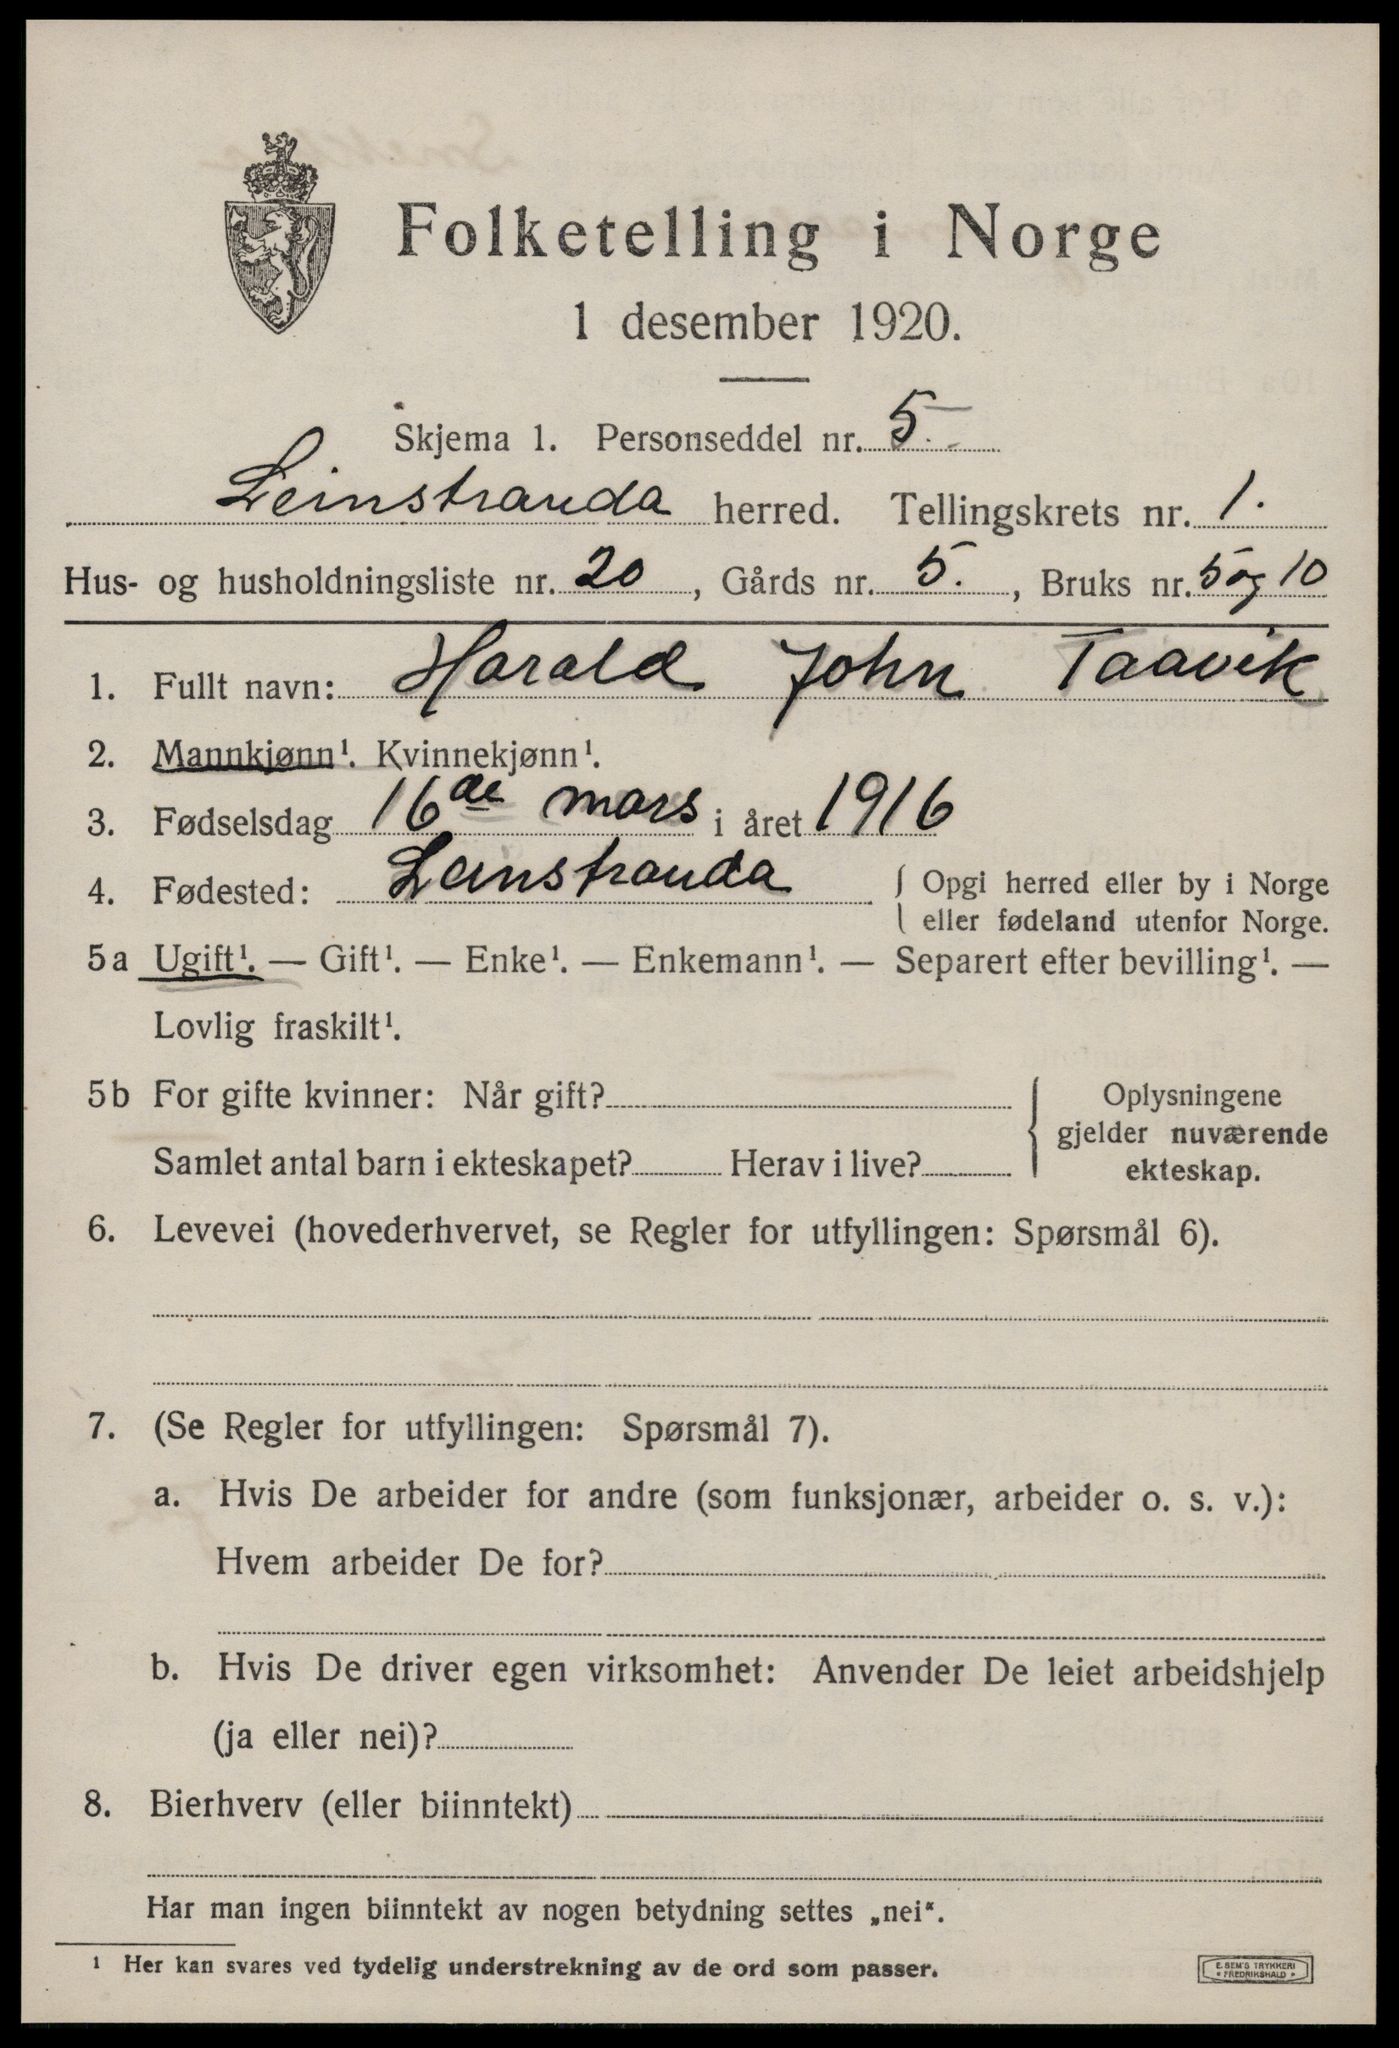 Folketelling i Norge
1 desember 1920.
Skjema 1. Personseddel nr. 5.
Leinstranda herred. Tellingskrets nr. 1.
Hus- og husholdningsliste nr. 20, Gårds nr. 5., Bruks nr. 5 og 10
1. Fullt navn: Harald John Taavik
2. Mannkjønn¹. Kvinnekjønn¹.
3. Fødselsdag 16de mars i året 1916
4. Fødested: Leinstranda { Opgi herred eller by i Norge
eller fødeland utenfor Norge.
5a Ugift¹. — Gift¹. — Enke¹. — Enkemann¹. — Separert efter bevilling¹. —
Lovlig fraskilt¹.
5b For gifte kvinner: Når gift? { Oplysningene
gjelder nuværende
Samlet antal barn i ekteskapet? Herav i live? ekteskap.
6. Levevei (hovederhvervet, se Regler for utfyllingen: Spørsmål 6).
7. (Se Regler for utfyllingen: Spørsmål 7).
a. Hvis De arbeider for andre (som funksjonær, arbeider o. s. v.):
Hvem arbeider De for?
b. Hvis De driver egen virksomhet: Anvender De leiet arbeidshjelp
(ja eller nei)?
8. Bierhverv (eller biinntekt)
Har man ingen biinntekt av nogen betydning settes „nei“.
¹ Her kan svares ved tydelig understrekning av de ord som passer.
E. SEM'S TRYKKERI
• FREDRIKSHALD •